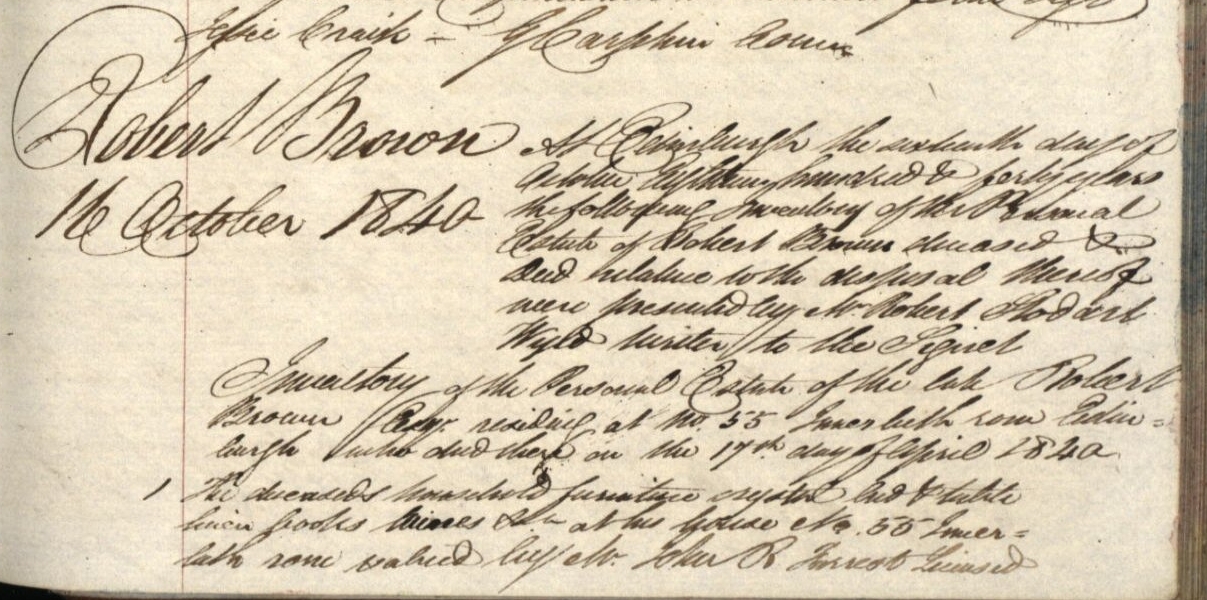 Jessie Craik = G Carphin Comr
Robert Brown
16 October 1840
At Edinburgh the sixteenth day of
October Eighteen hundred & forty years
the following Inventory of the Personal
Estate of Robert Brown deceased &
Deed relative to the disposal thereof
were presented by Mr Robert Stodart
Wyld Writer to the Signet
Inventory of the Personal Estate of the late Robert
Brown Esqr residing at No. 55 Inverleith row Edin=
burgh who died there on the 17th day of April 1840
1 The deceased's household furniture crystal bed & table
linen books wines &c at his house No. 55 Inver=
leith row valued by Mr. John R Forrest Licensed